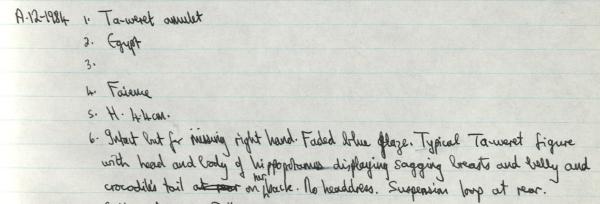 A.12-1984 1. Ta-weret amulet
2. Egypt
3.
4. Faience
5. H. 4.4cm.
6. Intact but for missing right hand. Faded blue glaze. Typical Ta-weret figure
with head and body of hippopotamus displaying sagging breasts and belly and
crocodile's tail on her back. No headdress. Suspension loop at rear.